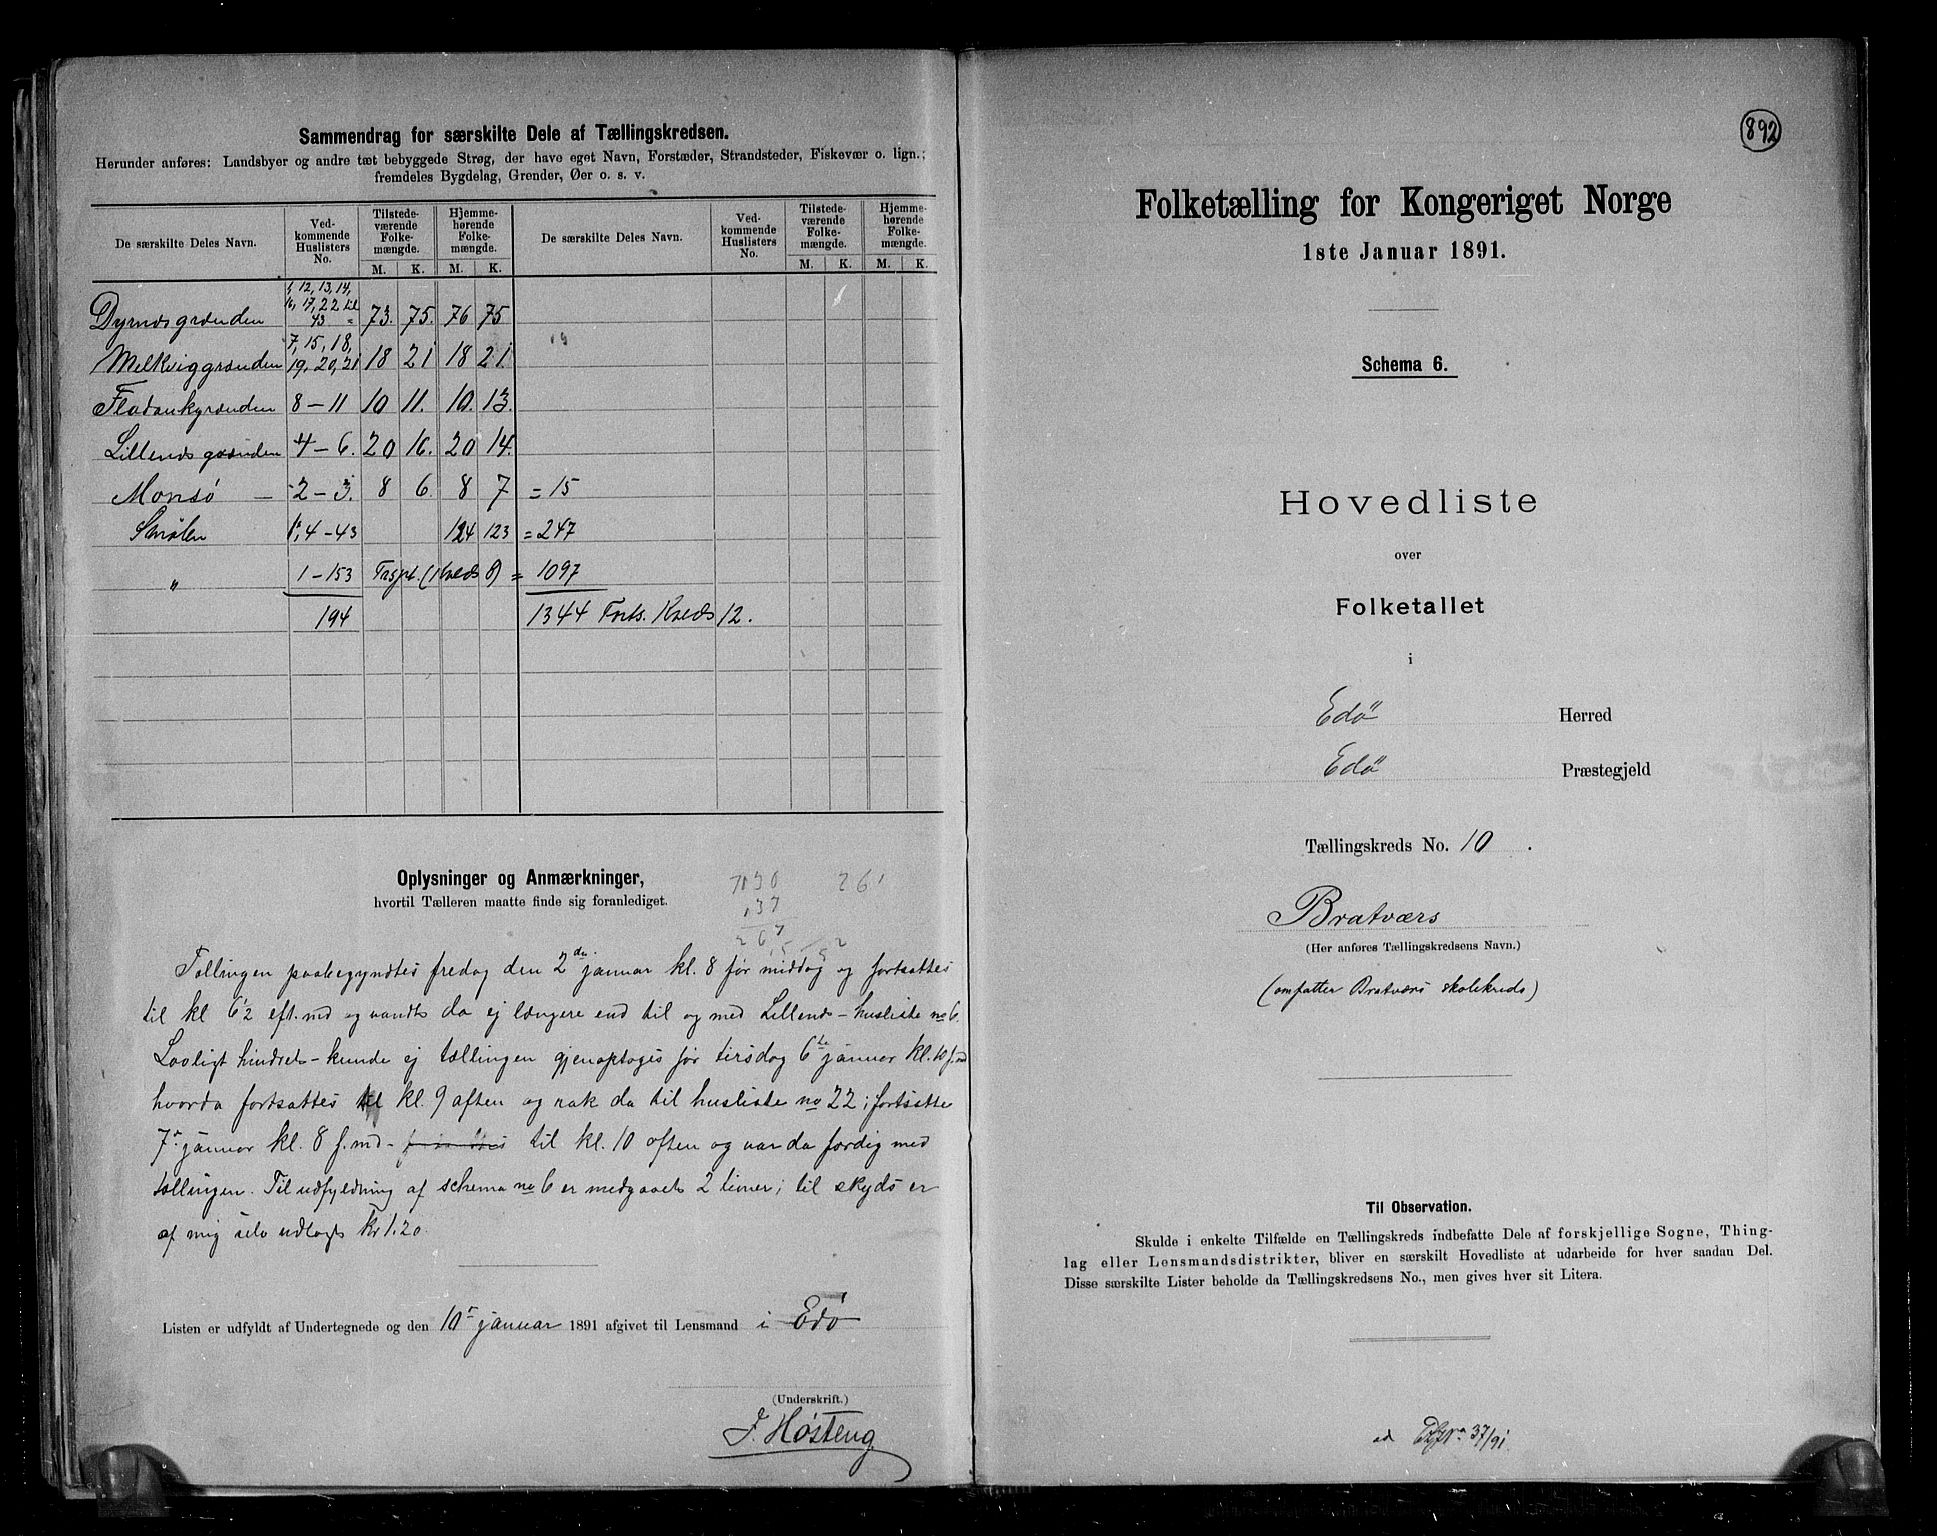 Sammendrag for særskilte Dele af Tællingskredsen.
Herunder anføres: Landsbyer og andre tæt bebyggede Strøg, der have eget Navn, Forstæder, Strandsteder, Fiskevær o. lign.;
fremdeles Bygdelag, Grender, Øer o. s. v.
De særskilte Deles Navn. Ved-kommende Huslisters No. Tilstede-værende Folke-mængde. Hjemme-hørende Folke-mængde. De særskilte Deles Navn. Ved-kommende Huslisters No. Tilstede-værende Folke-mængde. Hjemme-hørende Folke-mængde.
M. K. M. K. M. K. M. K.
Dyrnæsgrænden 1, 12, 13, 14, 16, 17, 22 til 43 73. 75. 76 75
Melkviggrænden 7, 15, 18, 19, 20, 21 18 21 18 21.
8 – 11 10 11. 10. 13.
Lillenæsgrænden 4 – 6. 20 16. 20 14.
Monsø – 2 – 3. 8 6. 8 7 = 15
Smølen 1, 4 – 43 124 123 = 247
" 1 – 153 Trspt. (Kreds 8) = 1097
194 1344 Forts. Kreds 12.
Oplysninger og Anmærkninger,
hvortil Tælleren maatte finde sig foranlediget.
Tællingen paabegyndtes fredag den 2de januar kl. 8 før middag og fortsattes
til kl 6½ eft.md og vandts da ej længere end til og med Lillenæs – husliste no 6.
Lovligt hindret – kunde ej tællingen gjenoptages før tirsdag 6te januar kl. 10 f.md
hvorda fortsattes til kl. 9 aften og rak da til husliste no 22; fortsatte
7de januar kl. 8 f.md – til kl. 10 aften og var da færdig med
tællingen. Til udfyldning af schema no 6 er medgaaet 2 timer; til skyds er
af mig selv udlagt kr 1.20.
Listen er udfyldt af Undertegnede og den 10de januar 1891 afgivet til Lensmand i Edø
(Underskrift.)
J. Høsteng
892
Folketælling for Kongeriget Norge
1ste Januar 1891.
Schema 6.
Hovedliste
over
Folketallet
i
Edø Herred
Edø Præstegjeld
Tællingskreds No. 10.
Bratværs
(Her anføres Tællingskredsens Navn.)
(omfatter Bratværs skolekreds)
Til Observation.
Skulde i enkelte Tilfælde en Tællingskreds indbefatte Dele af forskjellige Sogne, Thing-
lag eller Lensmandsdistrikter, bliver en særskilt Hovedliste at udarbeide for hver saadan Del.
Disse særskilte Lister beholde da Tællingskredsens No., men gives hver sit Litera.
ad 37/91